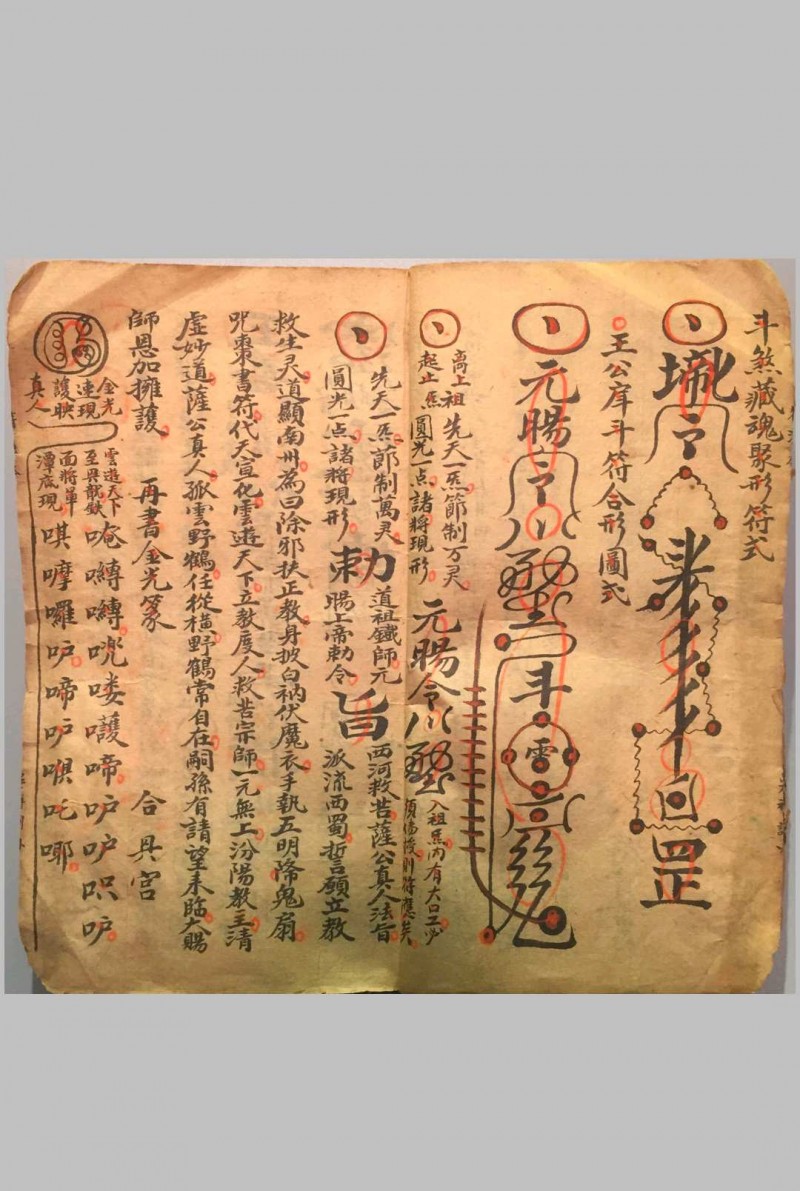 斗煞藏魂聚形符式
罡
王公庠斗符合形圖式
元暘
斗
雷
高上祖
起止炁
先天一炁節制万灵
圓光一点諸將現形
元暘令
入祖炁内有大口工夕
符應矣
先天一炁節制萬灵
圓光一点諸將現形
勅
道祖鐵師元
暘上帝勅令
旨
西河救苦薩公真人法旨
派流西蜀誓願立教
救生灵道顯南州為曰除邪扶正教身披白衲伏魔衣手執五明降鬼扇
咒棗書符代天宣化雲遊天下立教度人救苦宗師一元無上汾陽教主清
虛妙道薩公真人孤雲野鶴任從橫野鶴常自在嗣孫有請望來臨大賜
師恩加擁護
再書金光篆
合具宮
金光
連現
護映
真人
雲遊天下
至與龍欽
面將單
潭底現
唵嚩嚩吮嘍護啼𠰷𠰷呪𠰷
唭嚤囉𠰷啼𠰷㖵吒唧